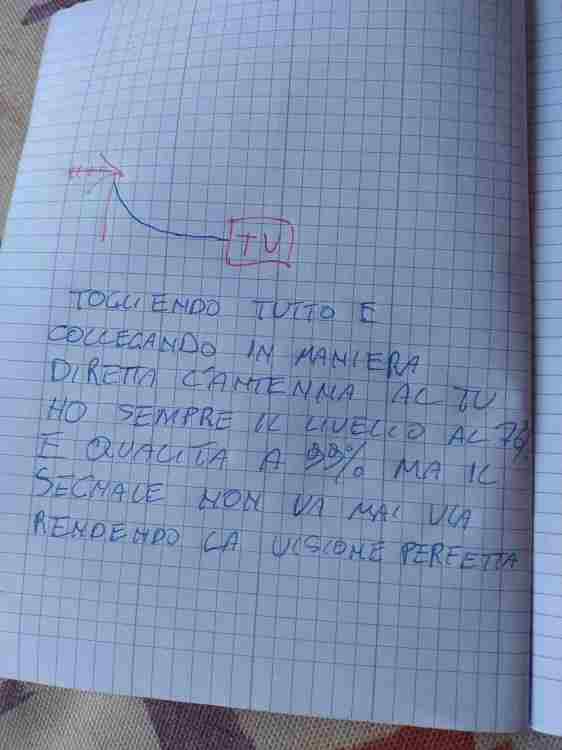 TV
TOGLIENDO TUTTO E
COLLEGANDO IN MANIERA
DIRETTA L'ANTENNA AL TV
HO SEMPRE IL LIVELLO AL 78%
E QUALITA A 99% MA IL
SEGNALE NON VA MAI VIA
RENDENDO LA VISIONE PERFETTA